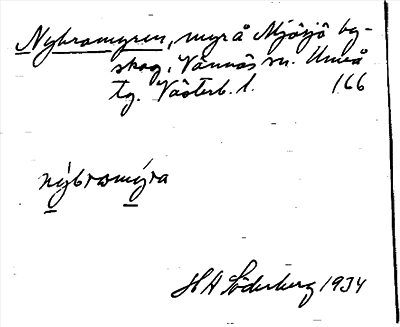 Nybromyren, myr å Mjösjö by-
skog, Vännäs sn. Umeå
tg. Västerb. l. 166
nýbromýra
H A Söderberg 1934